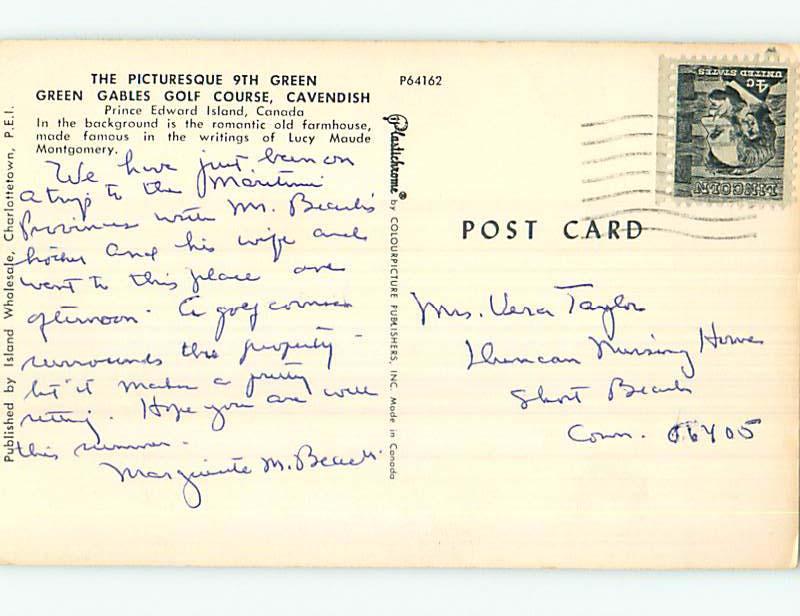 THE PICTURESQUE 9TH GREEN
GREEN GABLES GOLF COURSE, CAVENDISH
Prince Edward Island, Canada
In the background is the romantic old farmhouse,
made famous in the writings of Lucy Maude
Montgomery.
We have just been on
a trip to the Maritime
Provinces with Mr. Beach's
brother and his wife and
went to this place one
afternoon. A golf course
surrounds the property
but it makes a pretty
setting. Hope you are well
this summer.
Marguerite M. Beach.
Published by Island Wholesale, Charlottetown, P.E.I.
P64162
Plastichrome® by COLOURPICTURE PUBLISHERS, INC. Made in Canada
POST CARD
LINCOLN
4c
UNITED STATES
Mrs. Vera Taylor
Nursing Home
Short Beach
Conn. 06405